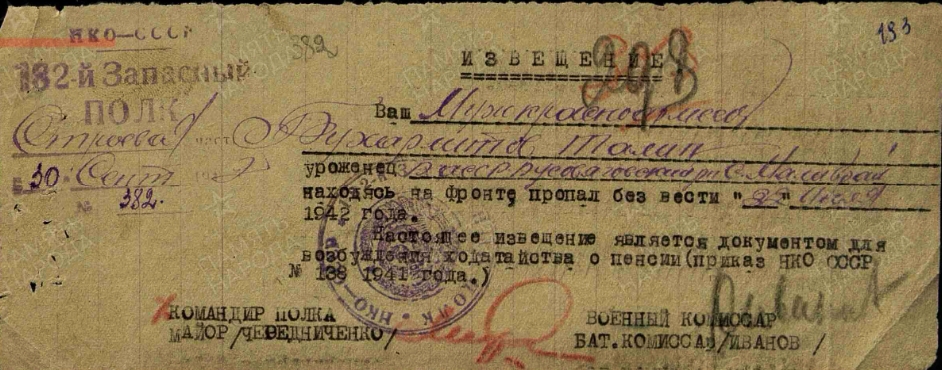 НКО—СССР
382
193
182-й Запасный
ПОЛК
ИЗВЕЩЕНИЕ
298
Строевая част
Ваш Муж красноармеец
"30" Сент
№ 382.
уроженец
находясь на фронте пропал без вести "22" Июля
1942 года.
Настоящее извещение является документом для
возбуждения ходатайства о пенсии(приказ НКО СССР
№ 138 1941 года.)
КОМАНДИР ПОЛКА
МАЙОР/ЧЕРЕДНИЧЕНКО/
ВОЕННЫЙ КОМИССАР
БАТ.КОМИССАР/ИВАНОВ /